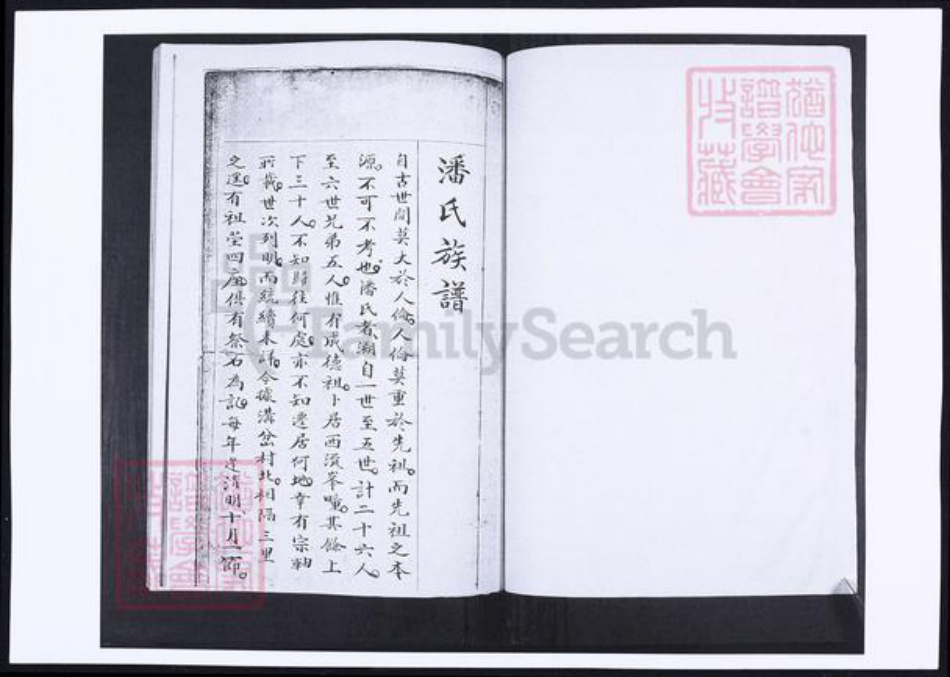 潘氏族譜
自古世間莫大於人倫人倫莫重於先祖而先祖之本
源不可不考也潘氏者溯自一世至五世計二十六人
至六世兄弟五人惟有成德祖卜居西流峯疃其餘上
下三十人不知歸往何處亦不知遷居何地幸有宗軸
所載世次列明而統續未歸今據溝岔村北相隔三里
之遙有祖塋四座俱有祭石為記每年逢清明十月一節
猶他家
譜學會
收藏
FamilySearch